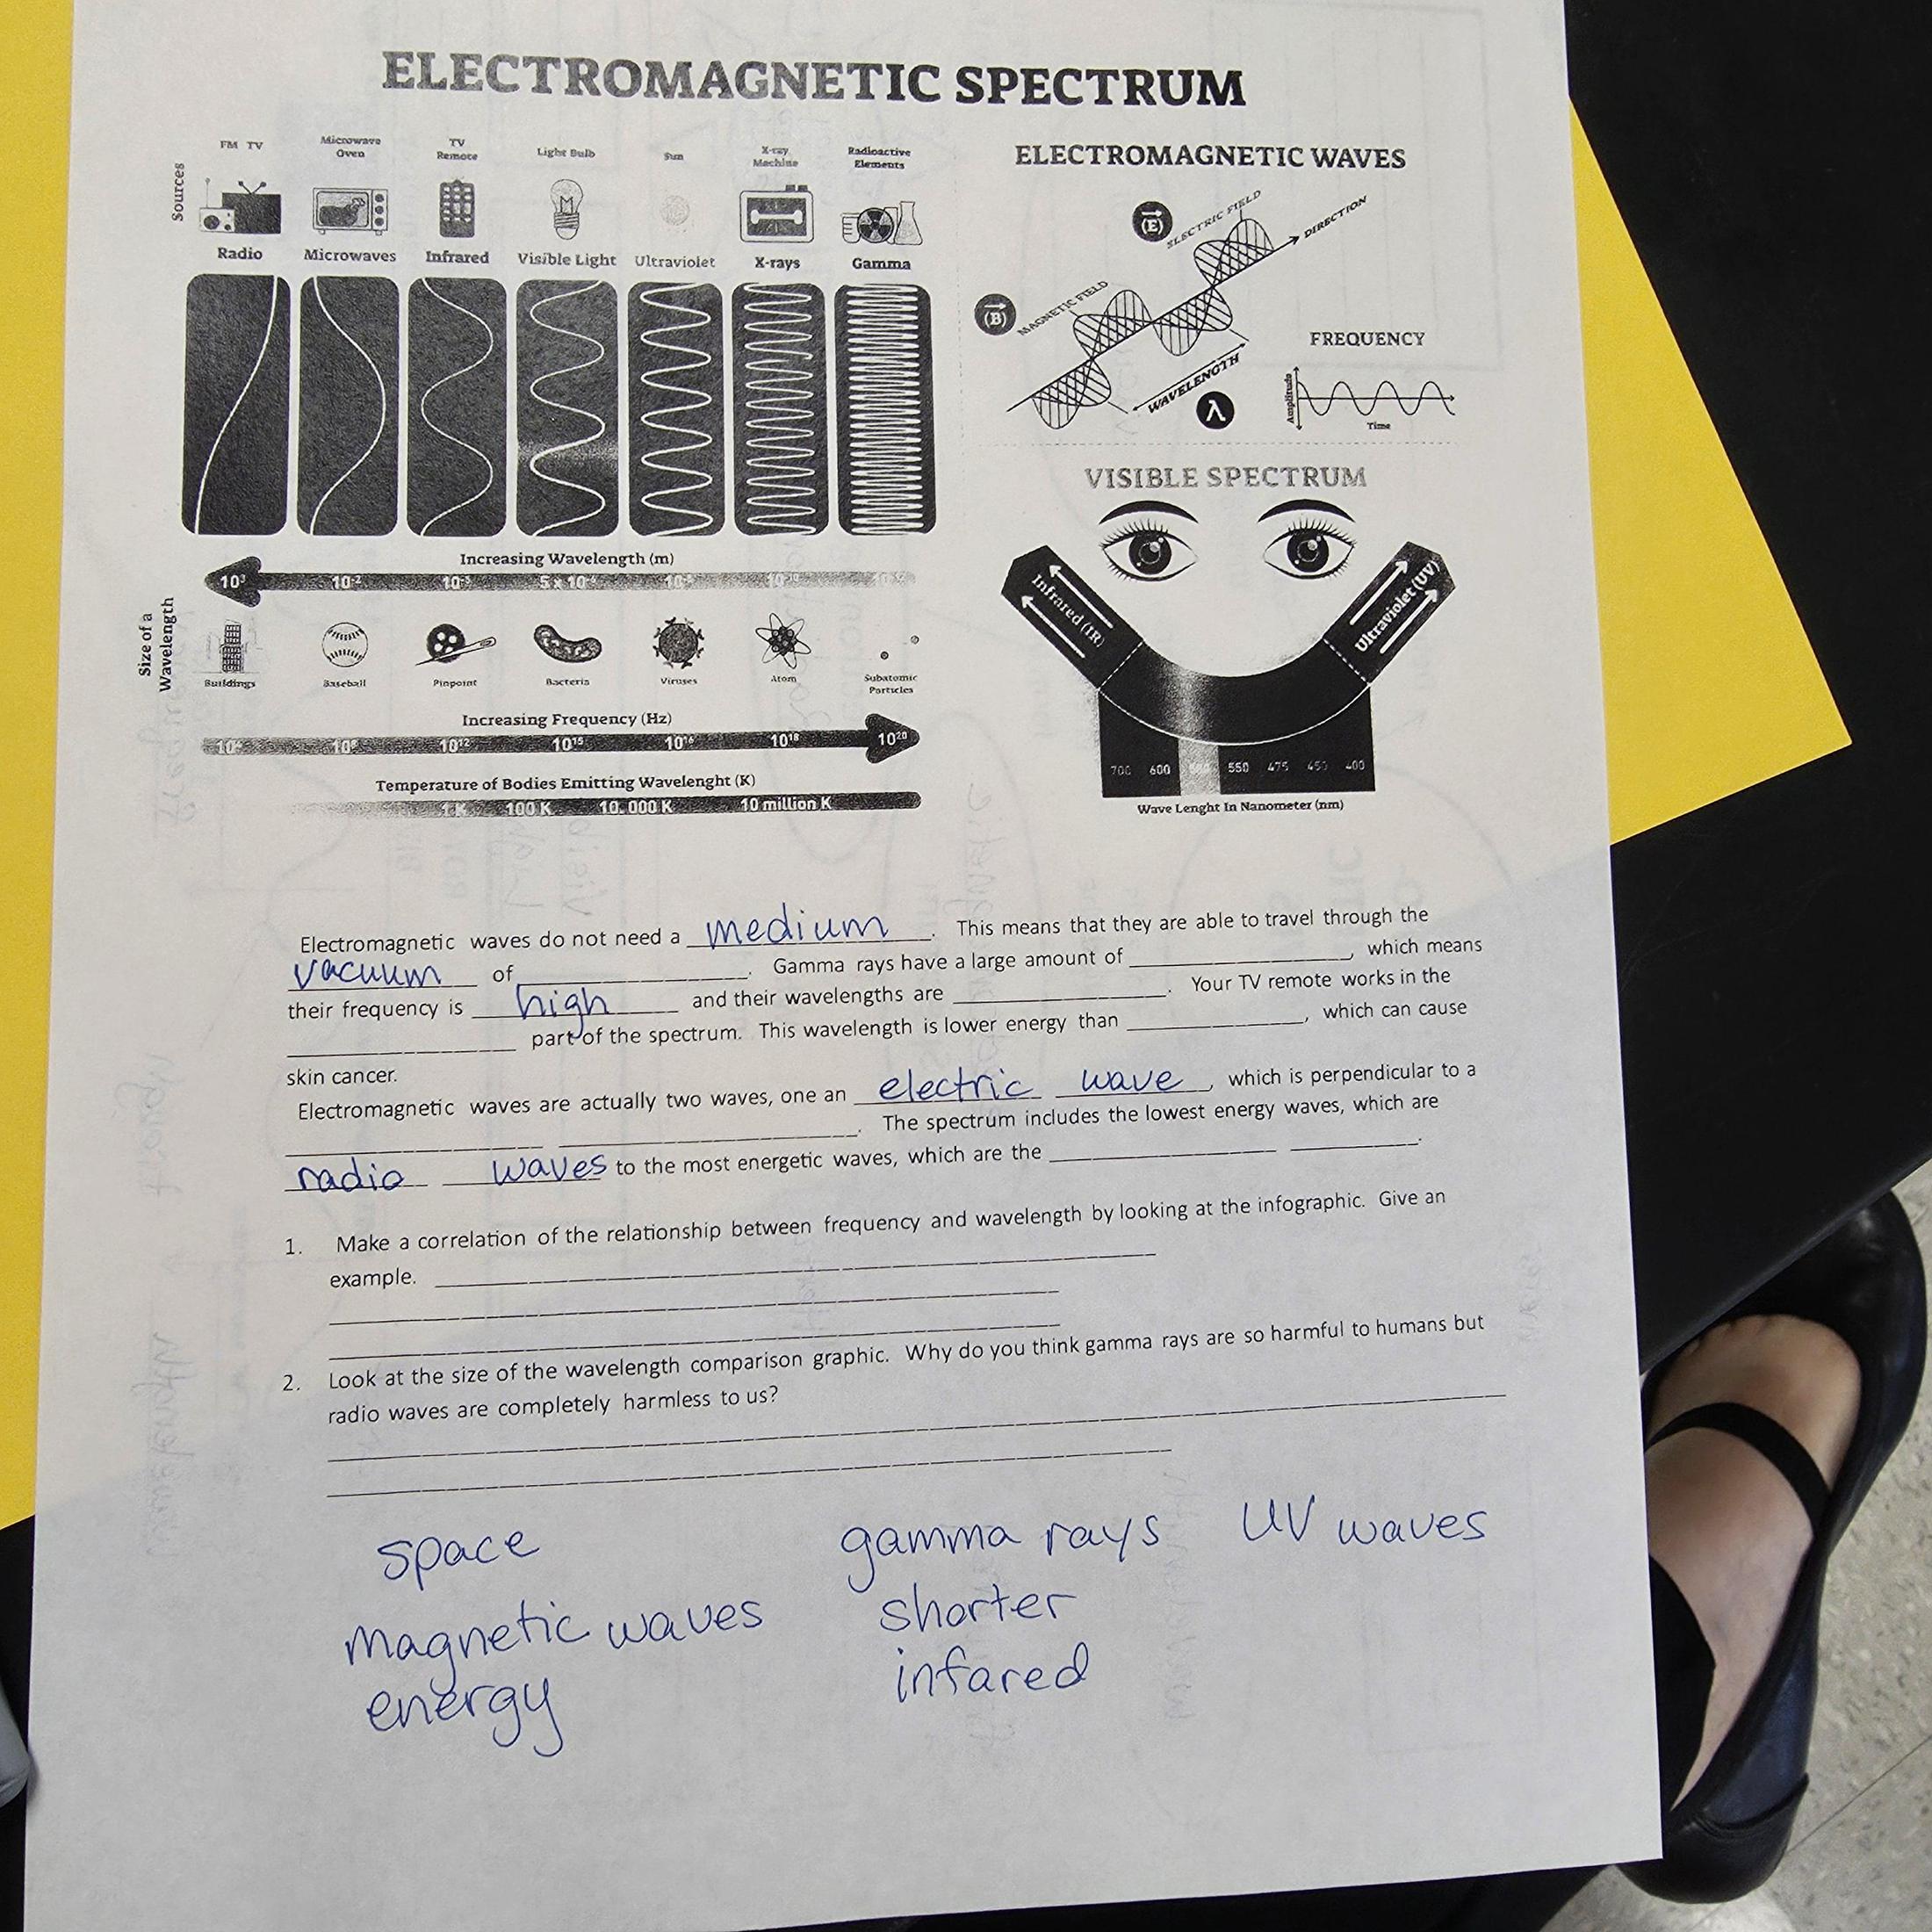 ELECTROMAGNETIC SPECTRUM
Sources
FM TV
Microwave
Oven
TV
Remote
Light Bulb
Sun
X-ray
Machine
Radioactive
Elements
Radio
Microwaves
Infrared
Visible Light
Ultraviolet
X-rays
Gamma
Increasing Wavelength (m)
10³
10⁻²
Size of a
Wavelength
Buildings
Baseball
Pinpoint
Bacteria
Viruses
Atom
Subatomic
Particles
Increasing Frequency (Hz)
10¹²
10¹⁵
10¹⁶
10¹⁸
10²⁰
Temperature of Bodies Emitting Wavelenght (K)
1 K 100 K 10,000 K 10 million K
ELECTROMAGNETIC WAVES
(E)
ELECTRIC FIELD
DIRECTION
(B)
MAGNETIC FIELD
WAVELENGTH
λ
FREQUENCY
Amplitude
Time
VISIBLE SPECTRUM
Infrared (IR)
Ultraviolet (UV)
700 600 550 475 450 400
Wave Lenght In Nanometer (nm)
Electromagnetic waves do not need a medium. This means that they are able to travel through the
vacuum of ________. Gamma rays have a large amount of ________, which means
their frequency is high and their wavelengths are ________. Your TV remote works in the
________ part of the spectrum. This wavelength is lower energy than ________, which can cause
skin cancer.
Electromagnetic waves are actually two waves, one an electric wave, which is perpendicular to a
________ ________. The spectrum includes the lowest energy waves, which are
radio waves to the most energetic waves, which are the ________ ________.
1. Make a correlation of the relationship between frequency and wavelength by looking at the infographic. Give an
example.
2. Look at the size of the wavelength comparison graphic. Why do you think gamma rays are so harmful to humans but
radio waves are completely harmless to us?
space gamma rays UV waves
magnetic waves shorter
energy infared